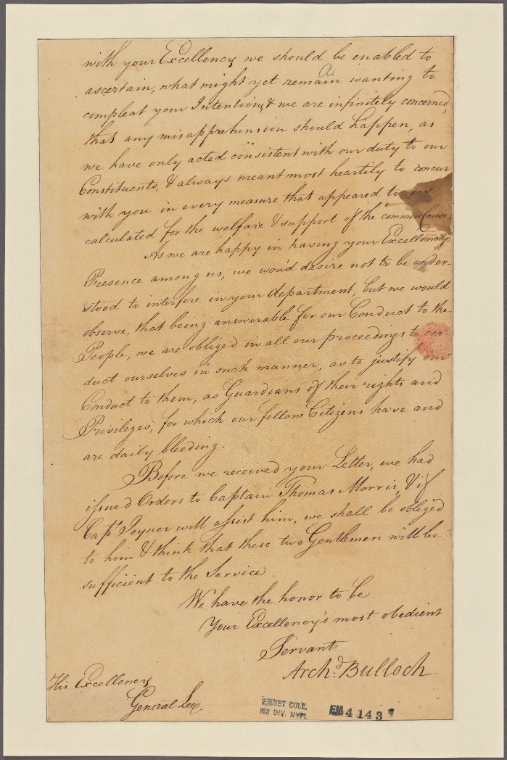 with your Excellency we should be enabled to
ascertain, what might yet remain wanting to
compleat your Intentions, & we are infinitely concerned
that any misapprehension should happen, as
we have only acted consistent with our duty to our
Constituents, & always meant most heartily to concur
with you in every measure that appeared to
calculated for the welfare & support of the common Cause
As we are happy in having your Excellency's
Presence among us, we wou'd desire not to be under-
stood to interfere in your department, but we would
observe, that being answerable for our Conduct to the
People, we are obliged in all our proceedings to con
duct ourselves in such manner, as to justify our
Conduct to them, as Guardians of their rights and
Privileges, for which our fellow Citizens have and
are daily bleeding.
Before we received your Letter, we had
issued Orders to Captain Thomas Morris, & if
Capt. Joyner will assist him, we shall be obliged
to him & think that these two Gentlemen will be
sufficient to the Service
We have the honor to be
Your Excellency's most obedient
Servants
Archd. Bulloch
His Excellency
General Lee.
EMMET COLL.
MS DIV. NYPL
EM 4143